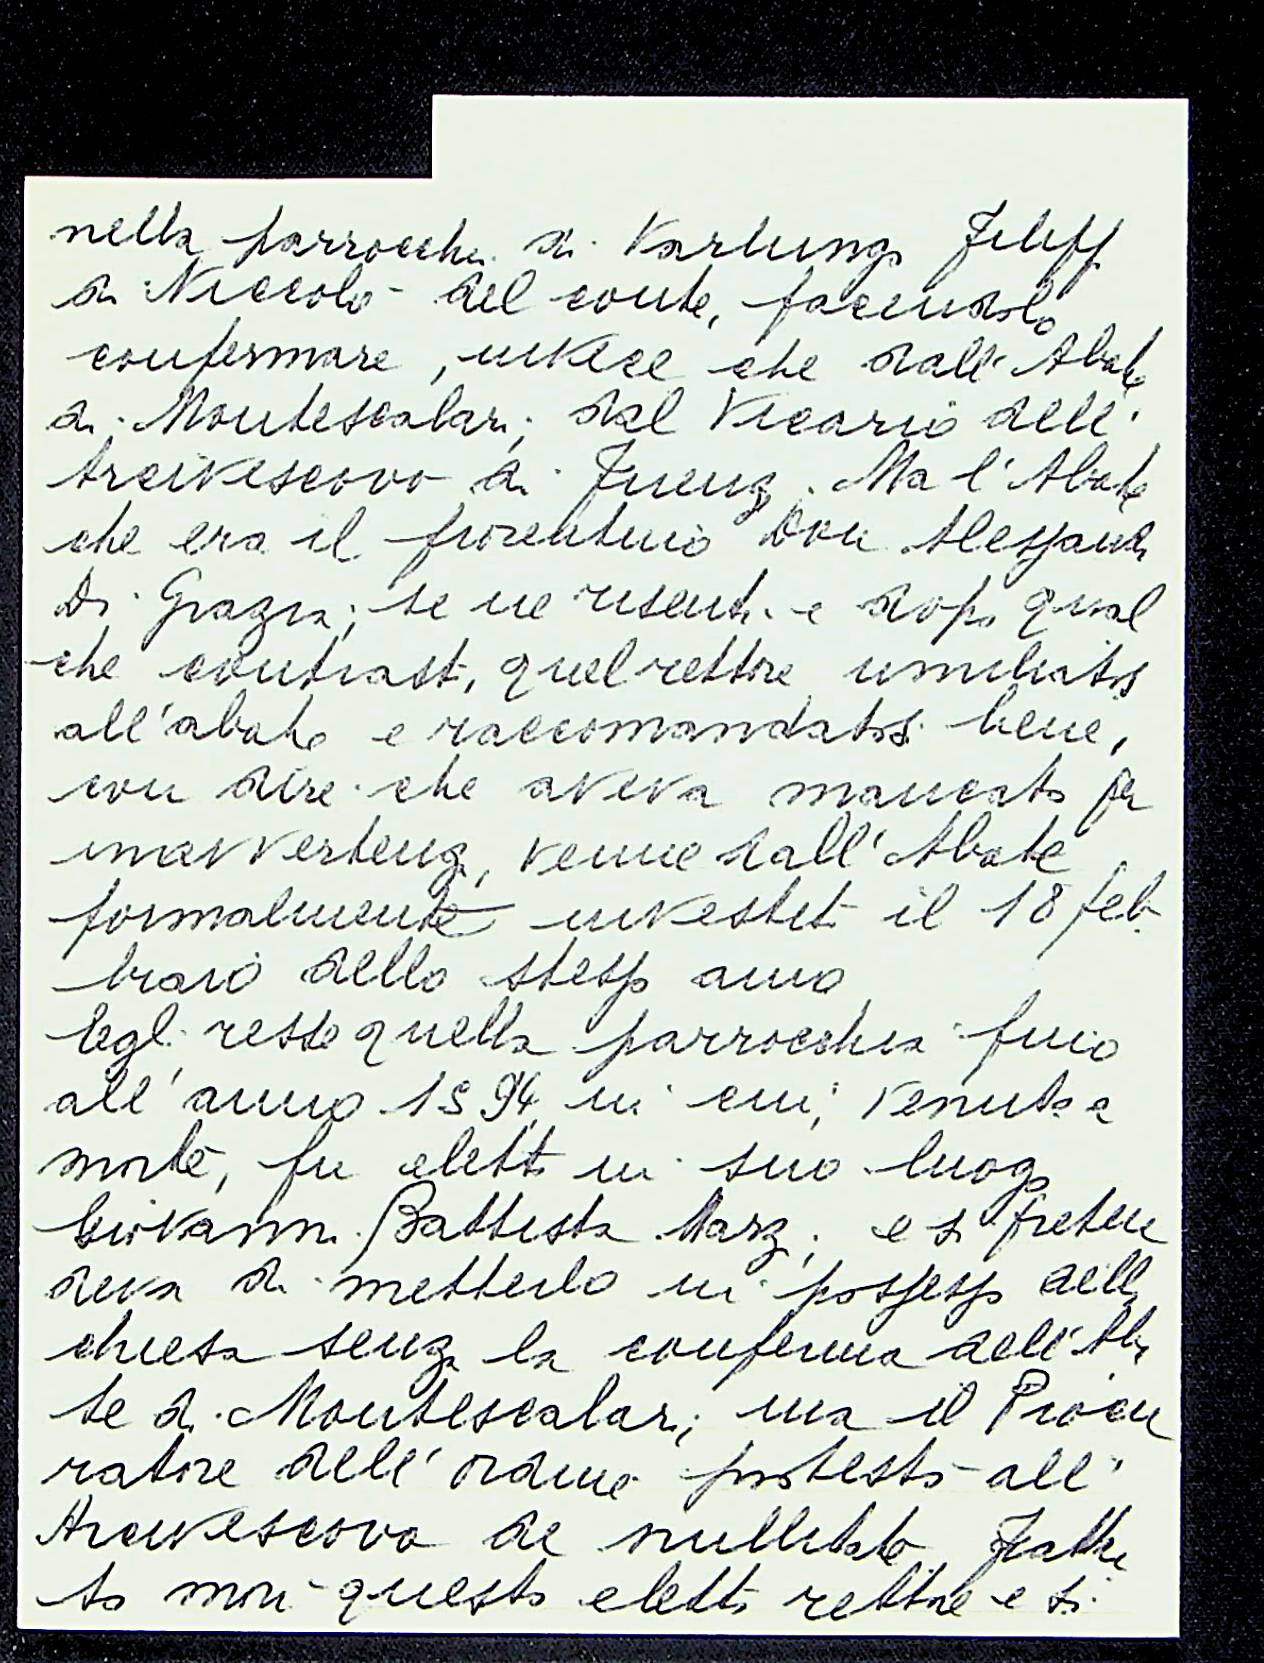 nella parrocchia di Varlungo Filipp
di Niccolò del conte, facendolo
confermare, invece che dall'Abate
di Montescalari, dal Vicario dell'
Arcivescovo di Firenze. Ma l'Abate
che era il fiorentino Don Alessandro
Di Grazia, se ne risentì e dopo qual
che contrasto, quel rettore umiliatosi
all'abate e raccomandatosi bene,
con dire che aveva mancato per
inavvertenza, venne dall'Abate
formalmente investito il 18 feb
braio dello stesso anno
Egli resse quella parrocchia fino
all'anno 1594 in cui, venuto a
morte, fu eletto in suo luogo
Giovanni Battista Marzi, e si preten
deva di metterlo in possesso della
chiesa senza la conferma dell'Aba
te di Montescalari, ma il Procu
ratore dell'ordine protestò all'
Arcivescovo de nullitate Fratta
to morì questo eletto rettore e si